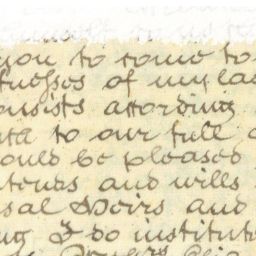 you to come to
tnesses of my las
onsists according
ata to our full
ould be pleased
tends and wills
sal Heirs and
ng I do institute